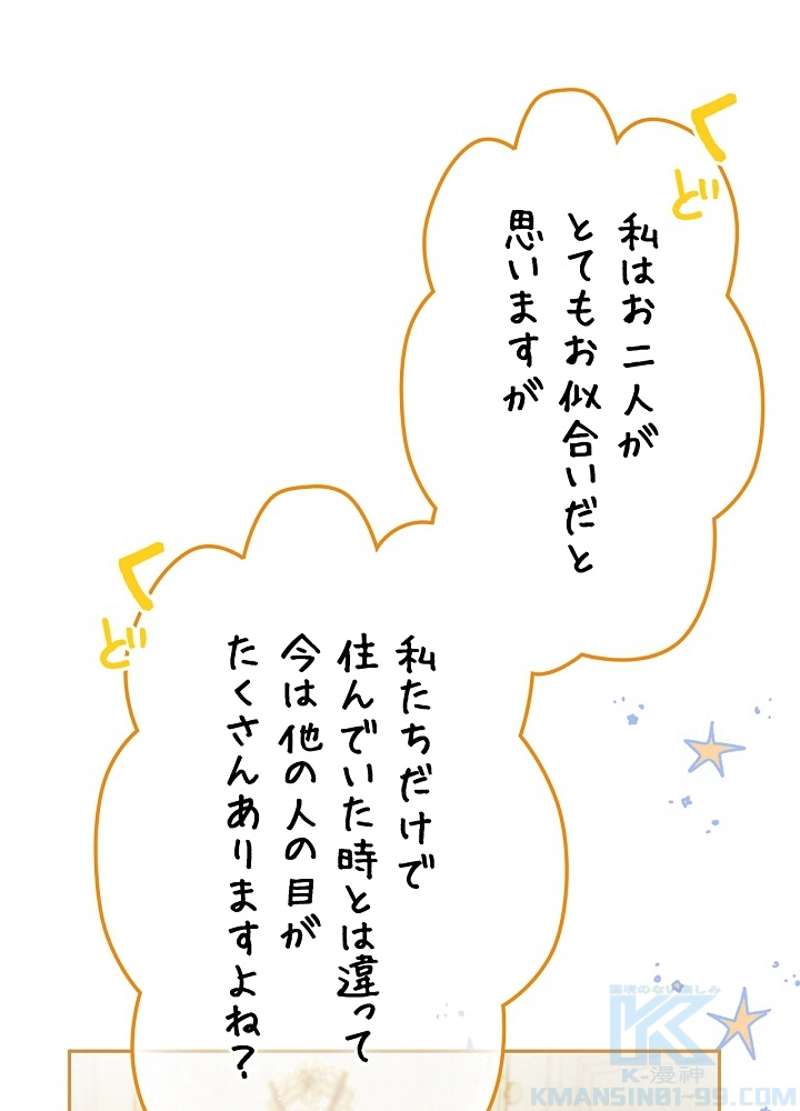 くど
私はお二人が
とてもお似合いだと
思いますが
くど
私たちだけで
住んでいた時とは違って
今は他の人の目が
たくさんありますよね?
K-漫神
KMANSIN01-99.COM